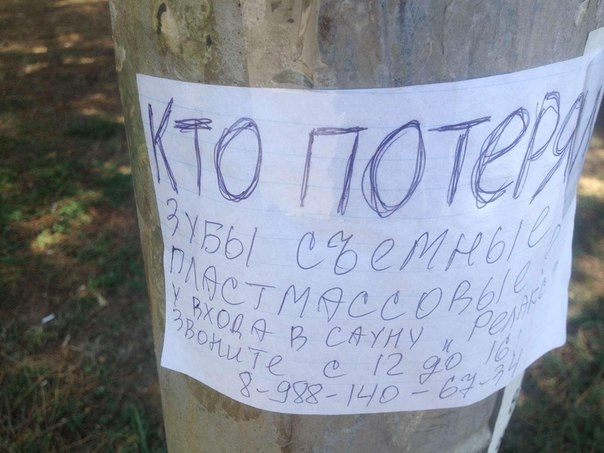 КТО ПОТЕРЯ
ЗУБЫ СЪЕМНЫЕ
ПЛАСТМАССОВЫЕ?
У ВХОДА В САУНУ „РЕЛАКС"
ЗВОНИТЕ С 12 ДО 16
8-988-140-67-34